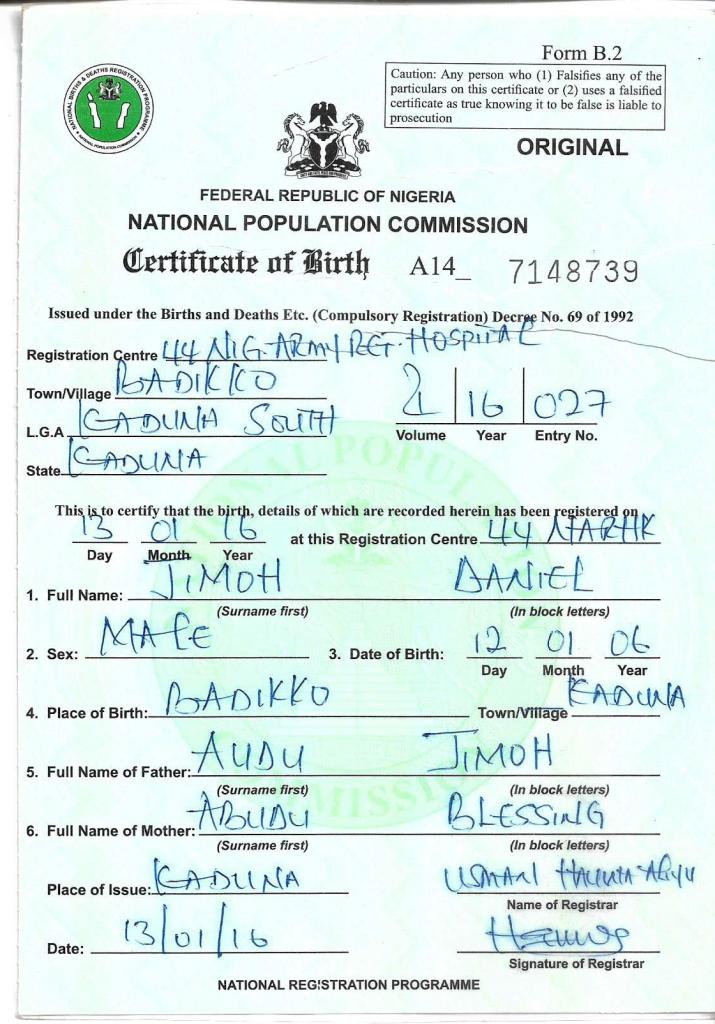 Form B.2
Caution: Any person who (1) Falsifies any of the
particulars on this certificate or (2) uses a falsified
certificate as true knowing it to be false is liable to
prosecution
NATIONAL BIRTHS & DEATHS REGISTRATION PROGRAMME
NATIONAL POPULATION COMMISSION
ORIGINAL
FEDERAL REPUBLIC OF NIGERIA
NATIONAL POPULATION COMMISSION
Certificate of Birth A14_ 7148739
Issued under the Births and Deaths Etc. (Compulsory Registration) Decree No. 69 of 1992
Registration Centre 44 NIG. ARMY REF. HOSPITAL
Town/Village BADIKKO
L.G.A KADUNA SOUTH
16 027
Volume Year Entry No.
State KADUNA
This is to certify that the birth, details of which are recorded herein has been registered on
13 01 16 at this Registration Centre 44 NARHK
Day Month Year
1. Full Name: JIMOH DANIEL
(Surname first) (In block letters)
2. Sex: MALE 3. Date of Birth: 12 01 06
Day Month Year
4. Place of Birth: BADIKKO Town/Village KADUNA
5. Full Name of Father: AUDU JIMOH
(Surname first) (In block letters)
6. Full Name of Mother: ABUDU BLESSING
(Surname first) (In block letters)
Place of Issue: KADUNA USMAN HAUWA ALIYU
Name of Registrar
Date: 13/01/16
Signature of Registrar
NATIONAL REGISTRATION PROGRAMME